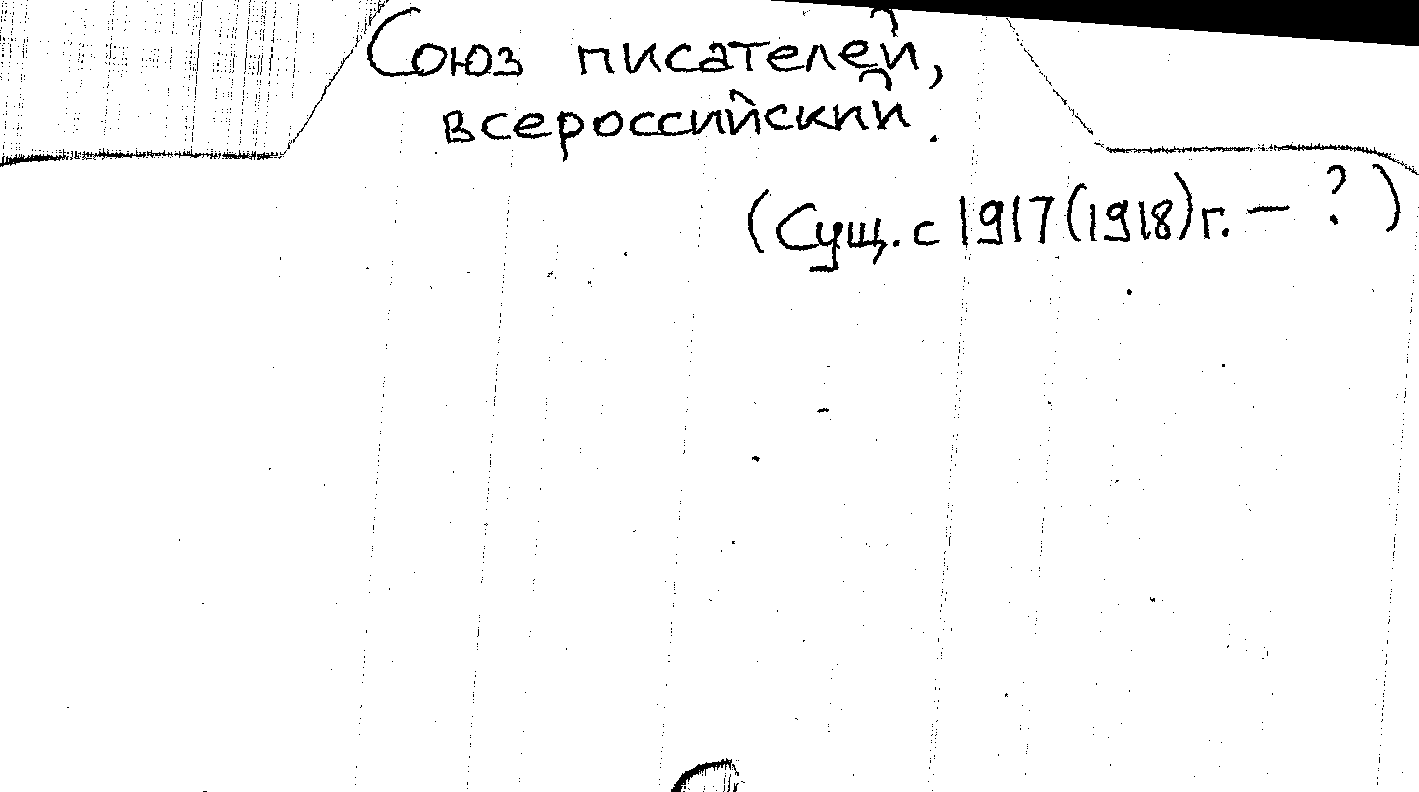 Союз писателей,
всероссийский.
(Сущ. с 1917(1918)г. — ?)